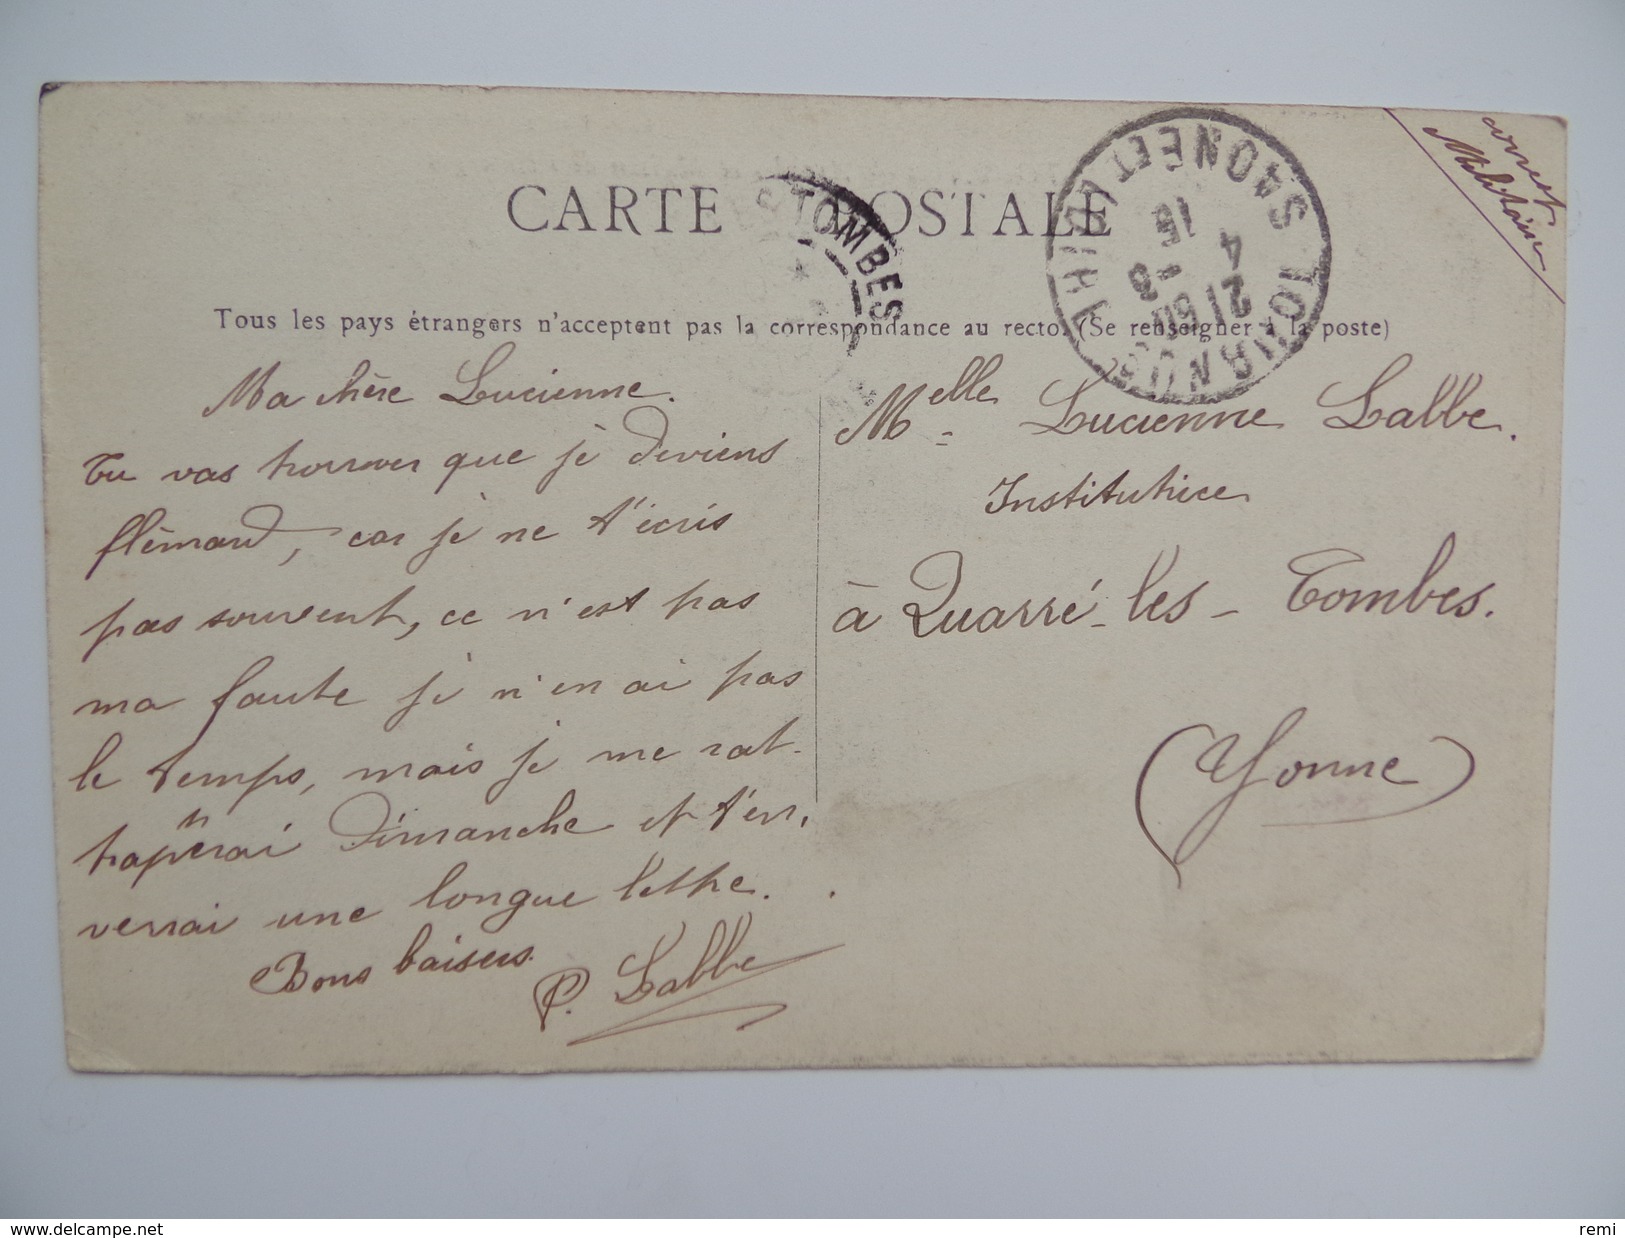 corresp
Militaire
CARTE POSTALE
TOMBES
TOURNUS SAONE ET LOIRE
21 50
4 - 3
15
Tous les pays étrangers n'acceptent pas la correspondance au recto. (Se renseigner à la poste)
Ma chère Lucienne.
Tu vas trouver que je deviens
flémard, car je ne t'écris
pas souvent, ce n'est pas
ma faute je n'en ai pas
le temps, mais je me rat-
traperai Dimanche et t'en-
verrai une longue lettre.
Bons baisers.
P. Labbe
Melle Lucienne Labbe.
Institutrice
à Quarré-les-Tombes.
(Yonne)
www.delcampe.net
remi